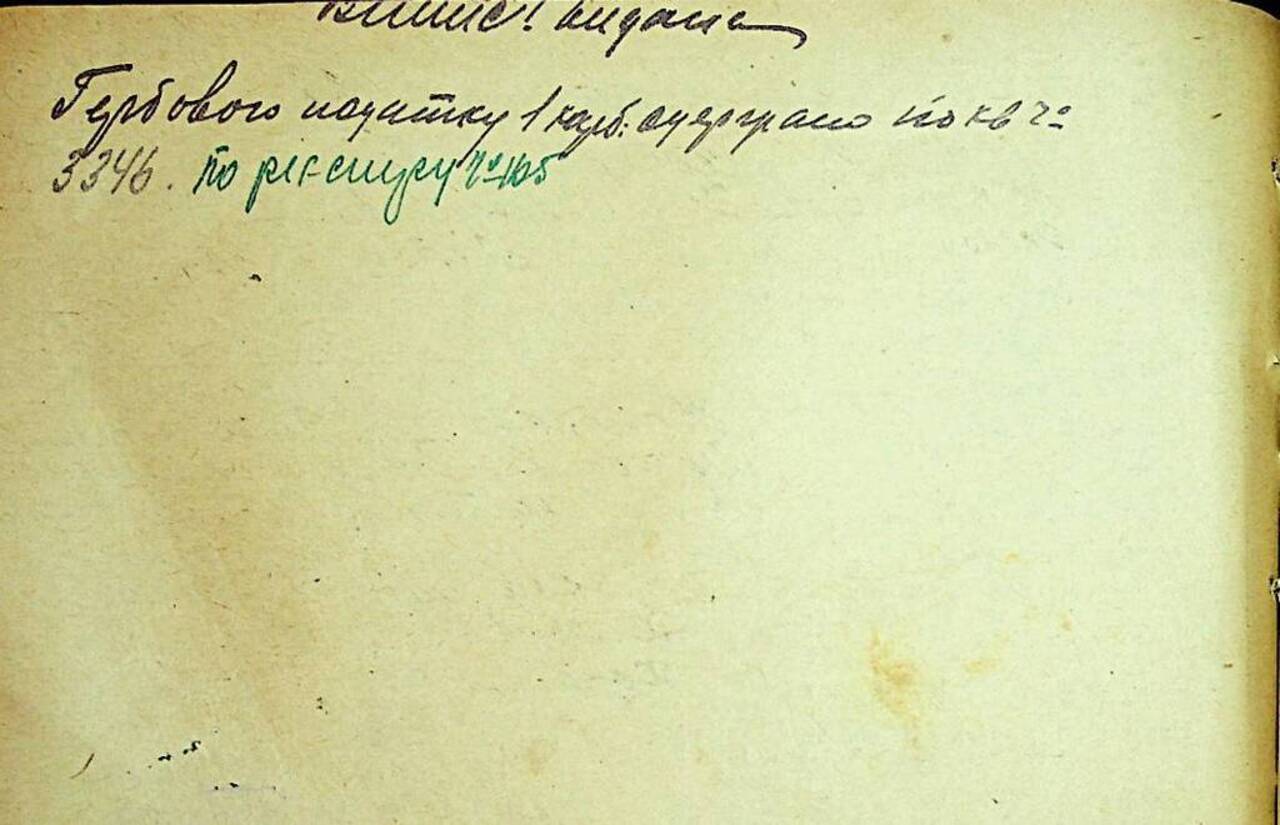 Випис! видане
Гербового податку 1 карб. одержано по кв чо
3346. по реєстру чо 105